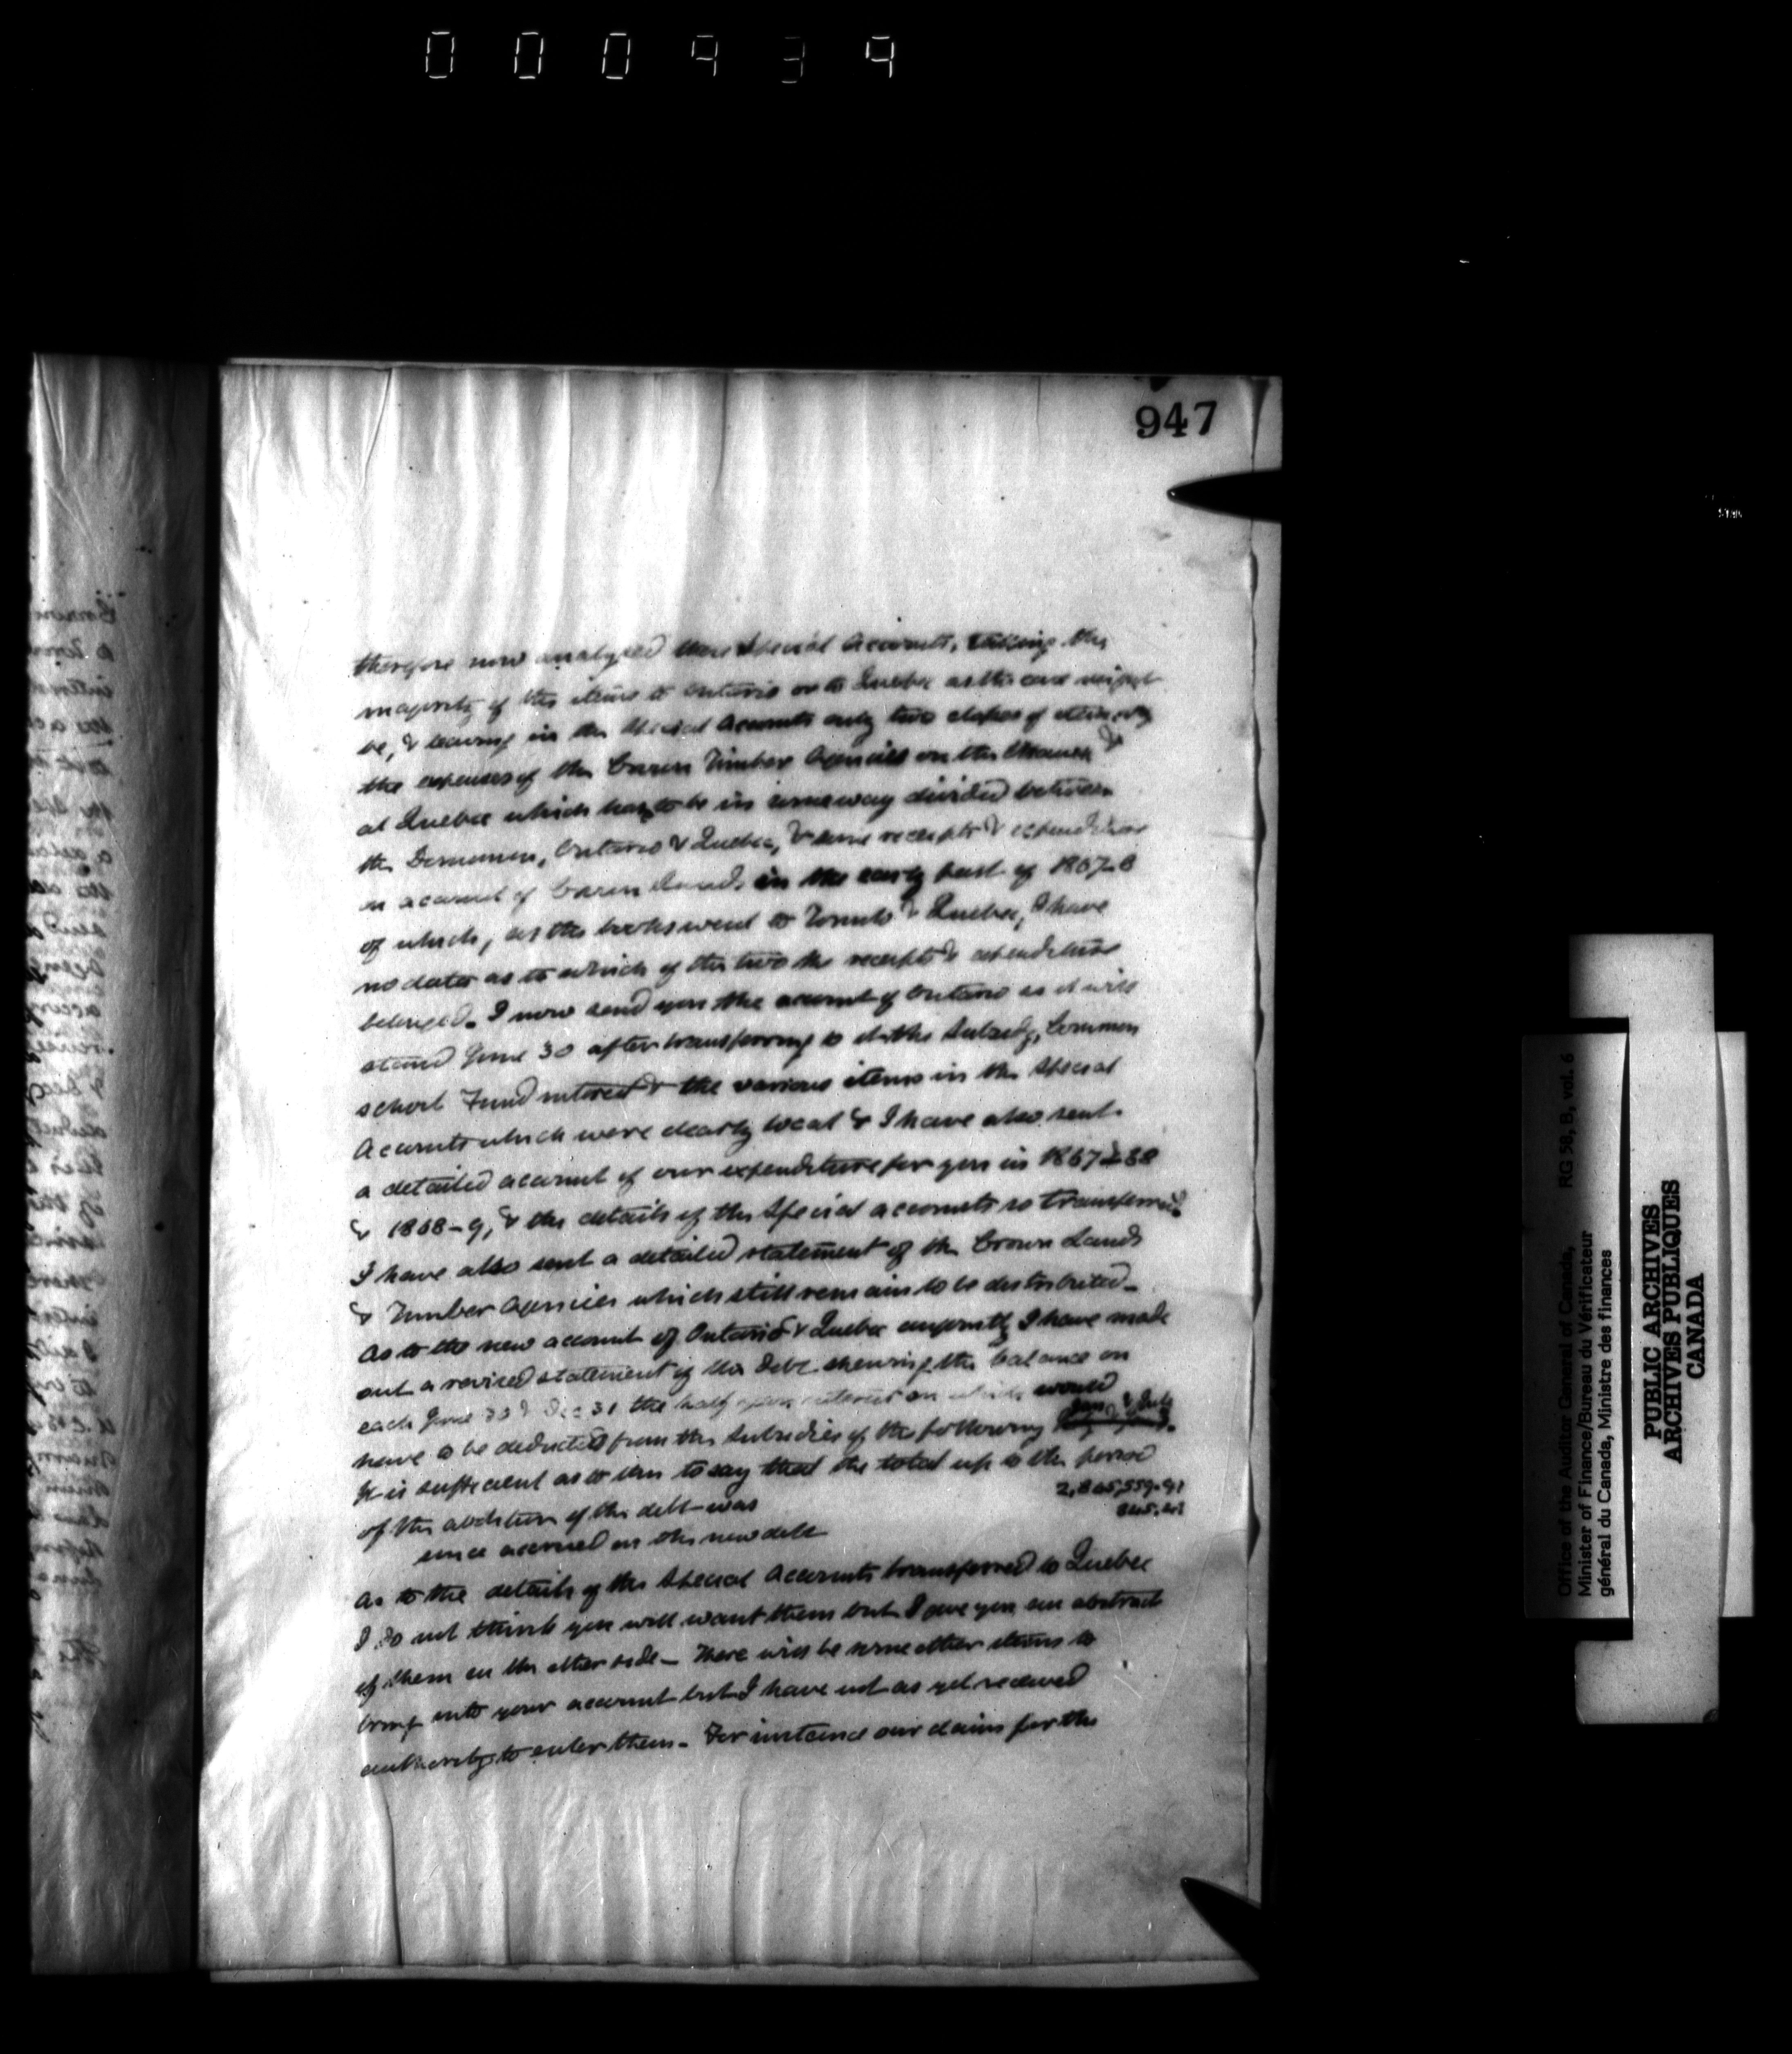 000934
947
therefore now analyzed these Special Accounts, taking the
majority of the items to Ontario or to Quebec as the case might
be, & leaving in the Special Accounts only two classes of items, viz
the expenses of the Crown Timber Agencies on the Ottawa &
at Quebec which has to be in some way divided between
the Dominion, Ontario & Quebec, & some receipts & expenditure
on account of Crown Lands in the early part of 1867-8
of which, as the books went to Toronto & Quebec, I have
no data as to which of the two the receipts & expenditure
belonged. I now send you the account of Ontario as it will
stand June 30 after transferring to it the Subsidy, Common
School Fund interest & the various items in the Special
Accounts which were clearly local & I have also sent
a detailed account of our expenditure for you in 1867-68
& 1868-9, & the details of the Special accounts so transferred
I have also sent a detailed statement of the Crown Lands
& Timber Agencies which still remain to be distributed—
As to the new account of Ontario & Quebec conjointly I have made
out a revised statement of the Debt shewing the balance on
each June 30 & Dec 31 the half year interest on which would
have to be deducted from the Subsidies of the following Jan & July
It is sufficient as to this to say that the total up to the period
of the abolition of the debt was 2,865,559.91
since accrued on the new debt
As to the details of the Special Accounts transferred to Quebec
I do not think you will want them but I give you an abstract
of them on the other side— There will be some other items to
bring into your account but I have not as yet received
authority to enter them. For instance our claim for the
Office of the Auditor General of Canada, RG 58, B, vol. 6
Minister of Finance/Bureau du Vérificateur
général du Canada, Ministre des finances
PUBLIC ARCHIVES
ARCHIVES PUBLIQUES
CANADA